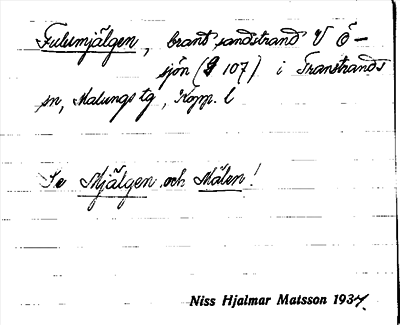 Fulumjälgen, brant sandstrand V Ö-
sjön (G 107) i Transtrands
sn, Malungs tg, Kopp. l
Se Mjälgen och Målen!
Niss Hjalmar Matsson 1937.